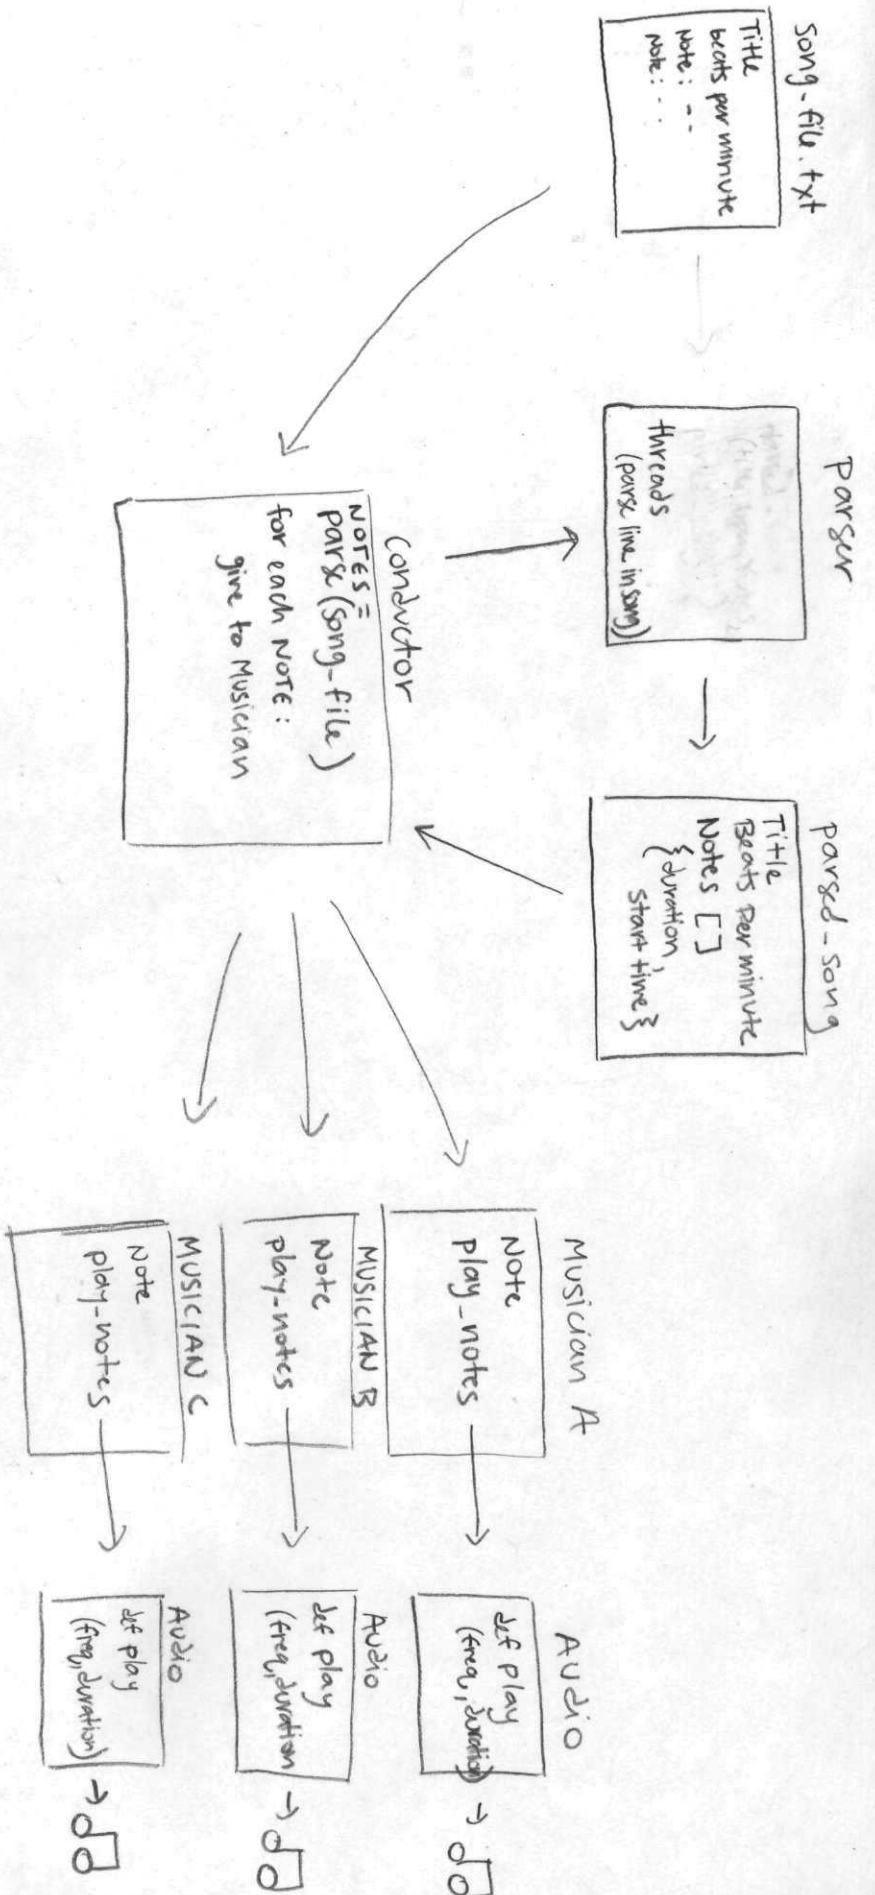 Song-file.txt
Title
beats per minute
Note: --
Note: --
parser
threads
(parse line in song)
parsed-song
Title
Beats Per minute
Notes []
{duration,
start time}
conductor
NOTES =
parse(song-file)
for each NOTE:
give to Musician
Musician A
Note
play-notes
MUSICIAN B
Note
play-notes
MUSICIAN C
Note
play-notes
Audio
def play
(freq, duration)
Audio
def play
(freq, duration
Audio
def play
(freq, duration)